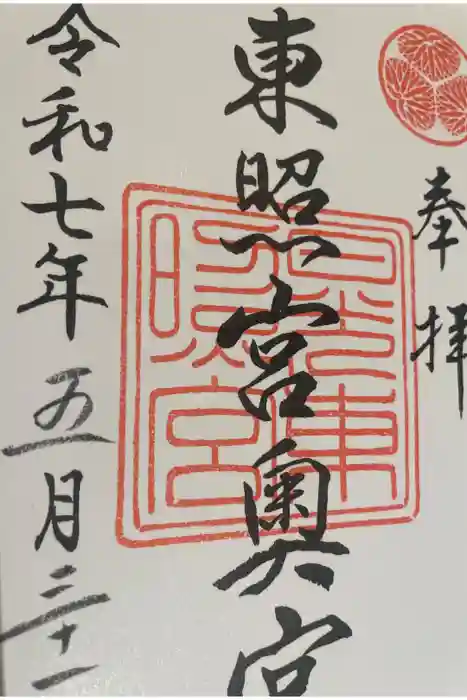 奉拝
東照宮奥宮
日光東照宮
令和七年五月三十一